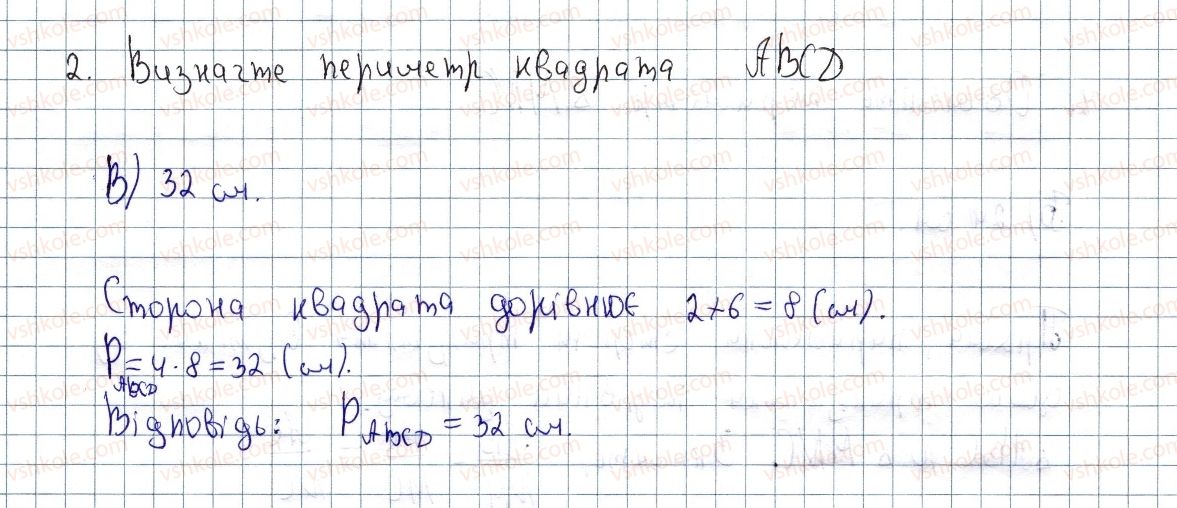 2. Визначте периметр квадрата ABCD
В) 32 см.
Сторона квадрата дорівнює 2+6=8 (см).
P_ABCD = 4·8=32 (см).
Відповідь: P_ABCD = 32 см.